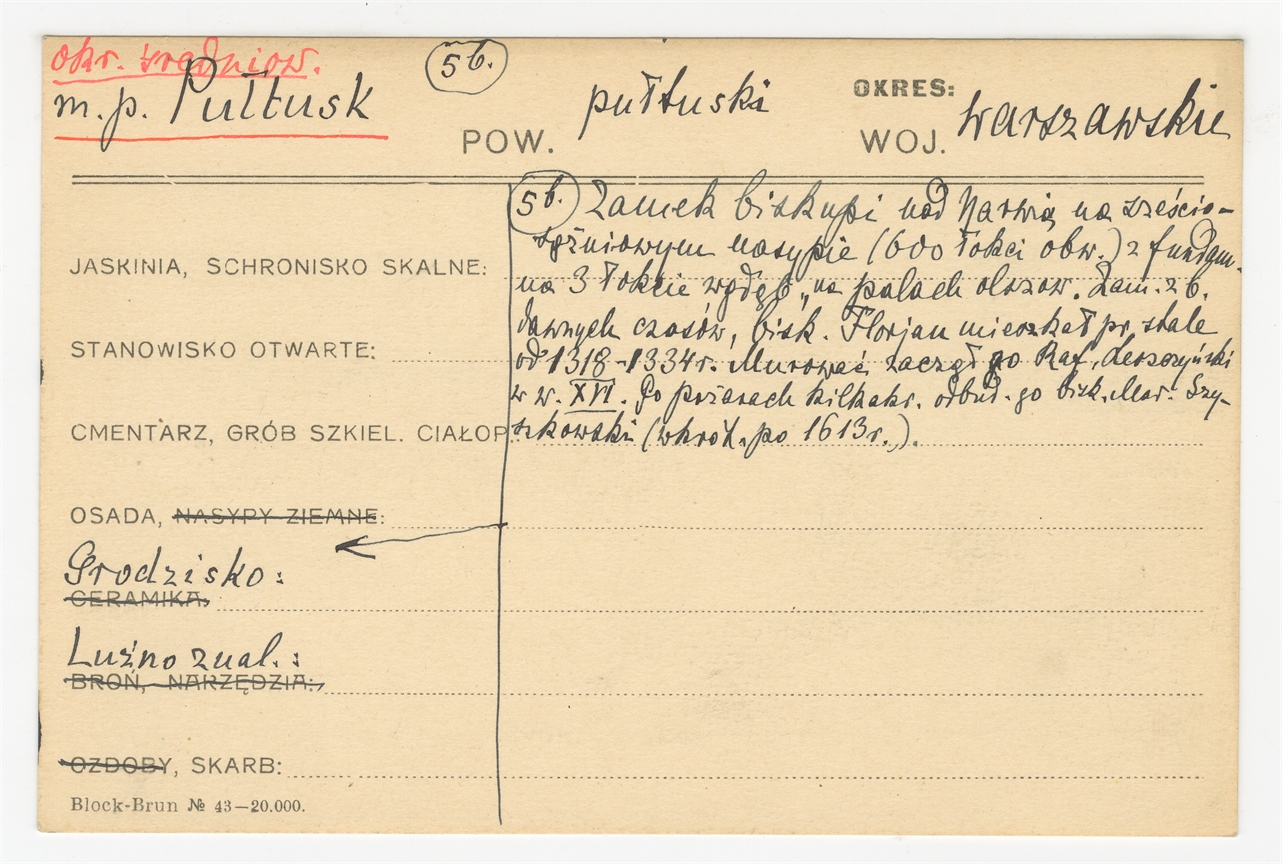 okr. średniow.
5b.
m.p. Pułtusk
POW. pułtuski
OKRES:
WOJ. warszawskie
5b. Zamek biskupi nad Narwią na sześcio-
sążniowym nasypie (600 łokci obw.) z fundam.
JASKINIA, SCHRONISKO SKALNE:
na 3 łokcie wgłąb „na palach olszow. Zam. z b.
dawnych czasów, bisk. Florjan mieszkał pr. stale
STANOWISKO OTWARTE:
od 1318-1334r. Murować zaczął go Raf. Leszczyński
w w. XVI. Po pożarach kilkakr. odbud. go bisk. Mar. Szy-
CMENTARZ, GRÓB SZKIEL. CIAŁOP.
szkowski (wkrót. po 1613r.).
OSADA, NASYPY ZIEMNE:
Grodzisko:
CERAMIKA:
Luźno znal.:
BROŃ, NARZĘDZIA:
OZDOBY, SKARB:
Block-Brun № 43—20.000.